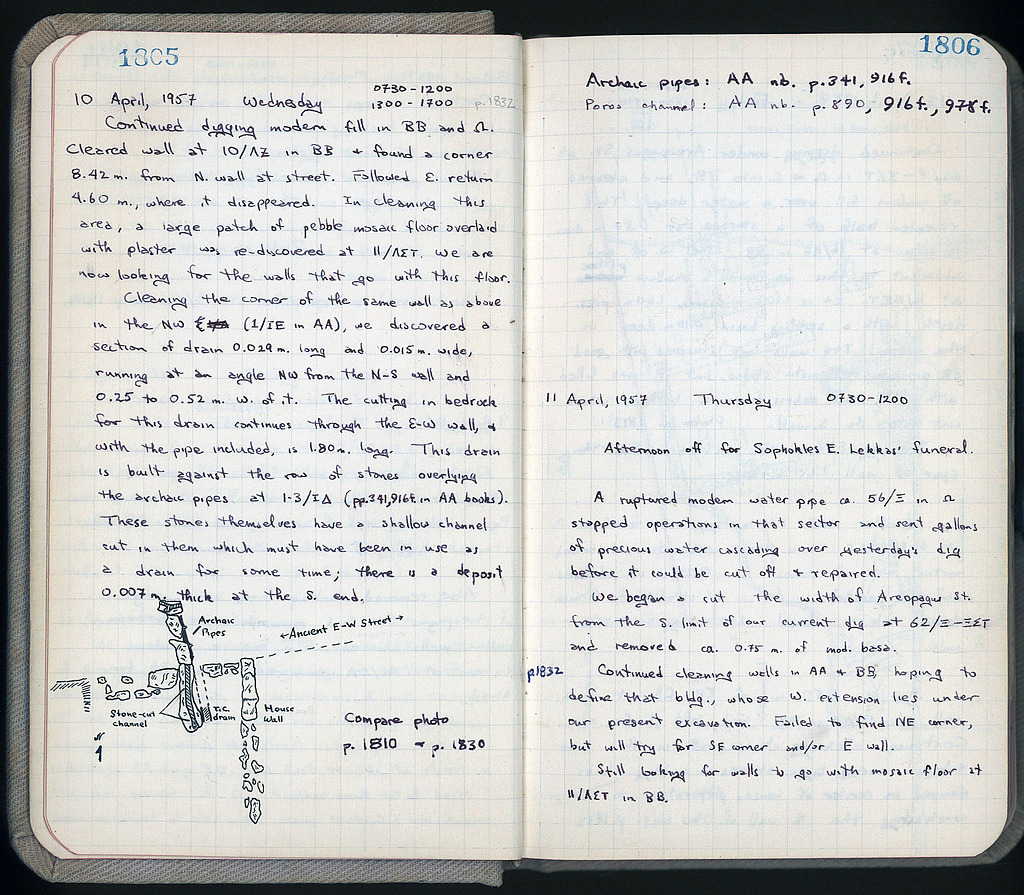 1805
0730-1200
10 April, 1957 Wednesday 1300-1700 p.1832
Continued digging modern fill in BB and Ω.
Cleared wall at 10/ΛΖ in BB & found a corner
8.42 m. from N. wall at street. Followed E. return
4.60 m., where it disappeared. In cleaning this
area, a large patch of pebble mosaic floor overlaid
with plaster was re-discovered at 11/ΛΣΤ. We are
now looking for the walls that go with this floor.
Cleaning the corner of the same wall as above
in the NW (1/ΙΕ in AA), we discovered a
section of drain 0.029 m. long and 0.015 m. wide,
running at an angle NW from the N-S wall and
0.25 to 0.52 m. W. of it. The cutting in bedrock
for this drain continues through the E-W wall, &
with the pipe included, is 1.80 m. long. This drain
is built against the row of stones overlying
the archaic pipes at 1-3/ΙΔ (pp.341,916f. in AA books).
These stones themselves have a shallow channel
cut in them which must have been in use as
a drain for some time; there is a deposit
0.007 m. thick at the S. end.
Archaic
Pipes
←Ancient E-W Street→
Stone-cut
channel
T.C.
drain
House
Wall
N
Compare photo
p. 1810 & p. 1830
1806
Archaic pipes: AA nb. p.341, 916f.
Poros channel: AA nb. p.890, 916f., 978f.
11 April, 1957 Thursday 0730-1200
Afternoon off for Sophokles E. Lekkas' funeral.
A ruptured modern water pipe ca. 56/Ξ in Ω
stopped operations in that sector and sent gallons
of precious water cascading over yesterday's dig
before it could be cut off & repaired.
We began a cut the width of Areopagus St.
from the S. limit of our current dig at 62/Ξ-ΞΣΤ
and removed ca. 0.75 m. of mod. basa.
p.1832 Continued cleaning walls in AA & BB, hoping to
define that bldg., whose W. extension lies under
our present excavation. Failed to find NE corner,
but will try for SE corner and/or E wall.
Still looking for walls to go with mosaic floor at
11/ΛΣΤ in BB.